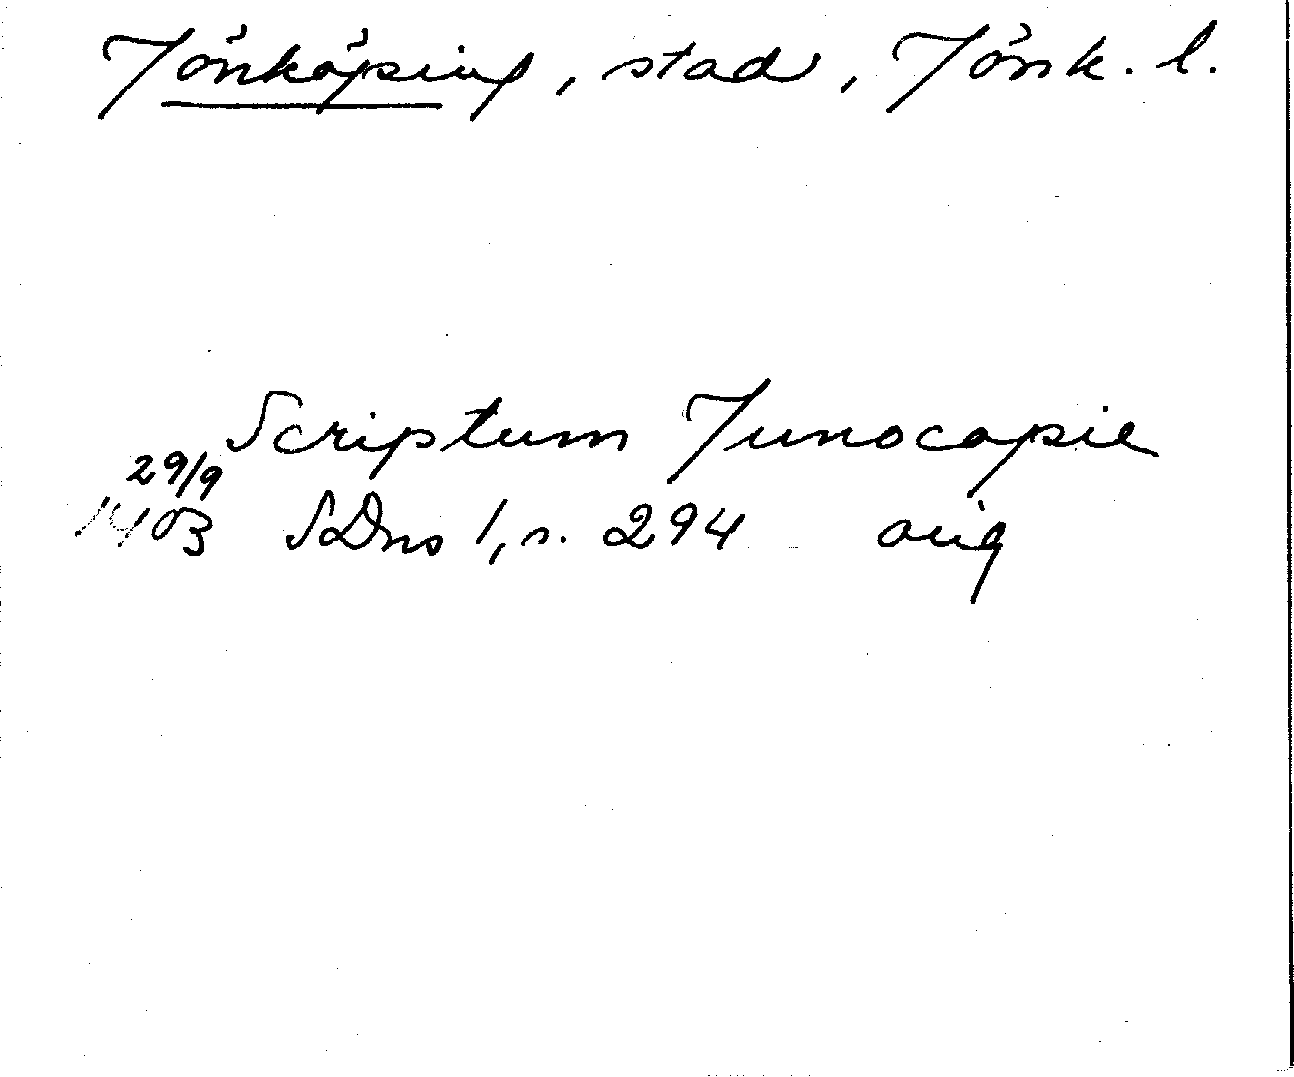 Jönköping, stad, Jönk. l.
Scriptum Junocopie
29/9
1403 SDns 1, s. 294 orig